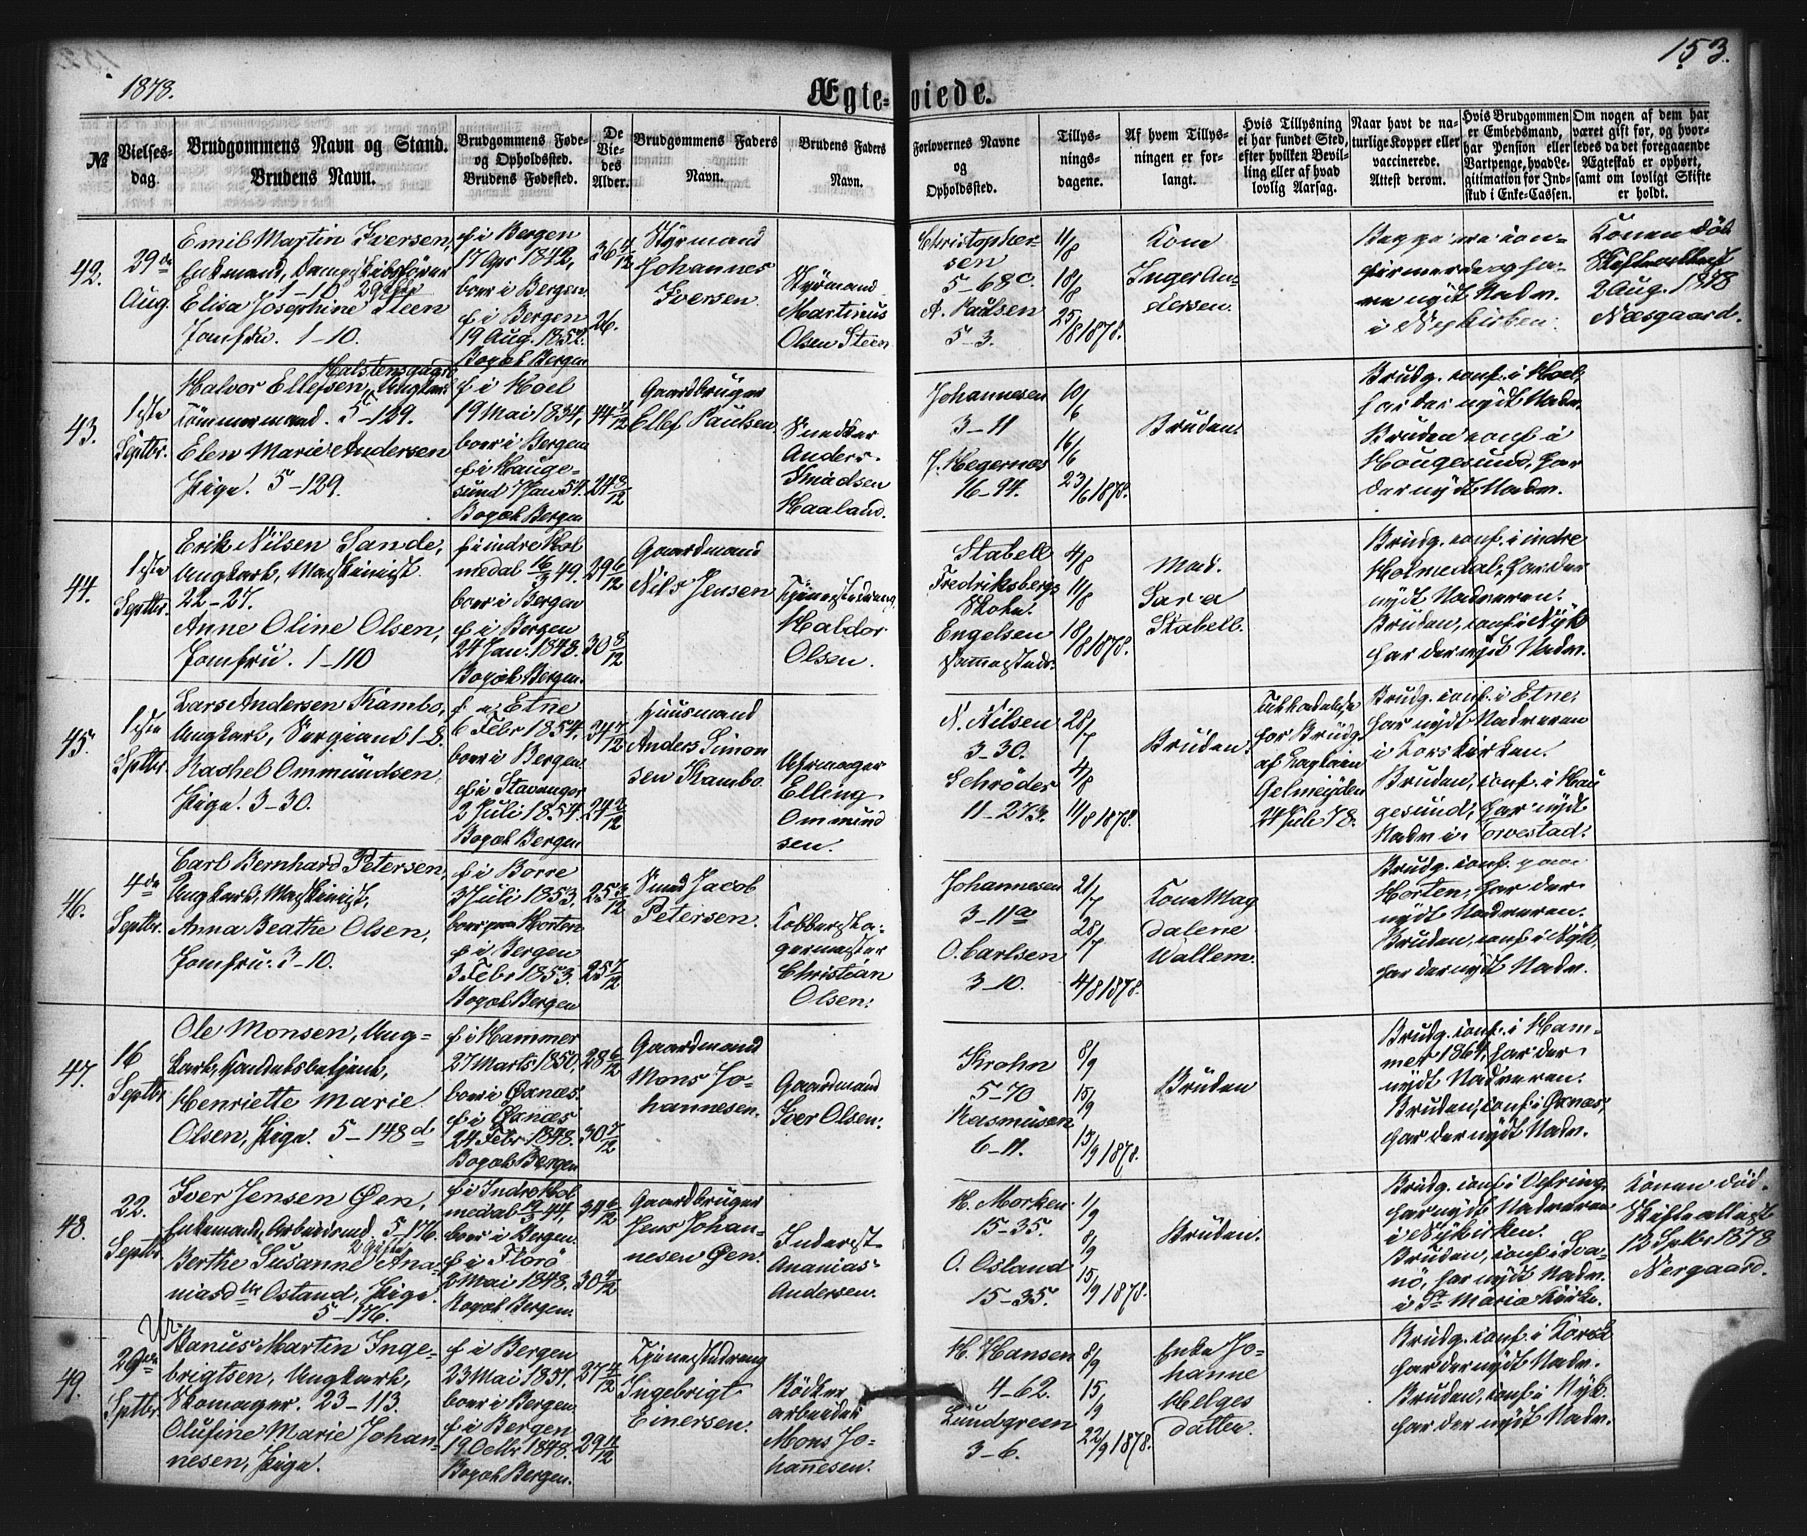 153.
1878.
Ægte-viede.
№
Vielses-
dag.
Brudgommens Navn og Stand.
Brudens Navn.
Brudgommens Føde-
og Opholdssted.
Brudens Fødested.
De
Vie-
des
Alder.
Brudgommens Faders
Navn.
Brudens Faders
Navn.
Forlovernes Navne
og
Opholdssted.
Tillys-
nings-
dagene.
Af hvem Tillys-
ningen er for-
langt.
Hvis Tillysning
ei har fundet Sted,
efter hvilken Bevil-
ling eller af hvad
lovlig Aarsag.
Naar havt de na-
turlige Kopper eller
vaccinerede.
Attest derom.
Hvis Brudgommen
er Embedsmand,
har Pension eller
Vartpenge, hvad Le-
gitimation for Ind-
skud i Enke-Cassen.
Om nogen af dem har
været gift før, og hvor-
ledes da det foregaaende
Ægteskab er ophørt,
samt om lovligt Skifte
er holdt.
42.
29de
Aug.
Emil Martin Iversen,
Enkemand, Dampskibsfører
1-10 2 Gifte
Elisa Josephine Steen
Jomfru. 1-10.
f i Bergen
17 Apr 1842,
boer i Bergen
f i Bergen
19 Aug. 1852.
Bopæl Bergen
36 4/12
26.
Styrmand
Johannes
Iversen
Styrmand
Martinus
Olsen Steen
Christopher-
sen
5-68c.
A. Paulsen
5-3.
11/8
18/8
25/8 1878.
Kone
Inger An-
dersen.
Begge ere con-
firmerede og ha-
ve nydt Nadv.
i Nykirken.
Konen død
Skifteattest
2 Aug. 1878
Næsgaard.
43.
1ste
Septbr.
Halvor Ellefsen, Ungkarl
Tømmermand. 5-129.
Elen Marie Andersen
Pige. 5-129.
f i Moel
19 Mai 1834,
boer i Bergen
f i Hauge-
sund 7 Jan 54.
Bopæl Bergen
44 1/12
24 8/12
Gaardbruger
Ellef Paulsen.
Snedker
Anders
Knudsen
Haaland.
Johannesen
3-11
J. Hegernæs
16-94.
10/6
16/6
23/6 1878.
Bruden.
Brudg. conf. i Moel,
har der nydt Nadv.
Bruden conf i
Hougesund, har
der nydt Nadv.
44.
1ste
Septbr.
Erik Nilsen Sande,
Ungkarl, Maskinist.
22-27.
Anne Oline Olsen,
Jomfru. 1-110
f i indre Hol
medal 16/3 49.
boer i Bergen
f i Bergen
24 Jan. 1848.
Bopæl Bergen.
29 6/12
30 8/12
Gaardmand
Nils Jensen
Tjenestedreng
Haldor
Olsen.
Stabell
Fredriksbergs
Skole.
Engelsen
4/8
11/8
18/8 1878.
Mad.
Sara
Stabell.
Brudg. conf. i indre
Holmedal, har der
nydt Nadveren.
Bruden, conf i Nyk
har der nydt Nadv.
45.
1ste
Septbr.
Lars Andersen Kambo,
Ungkarl, Sergeant 1-8.
Rachel Ommundsen
Pige. 3-30.
f i Etne
6 Febr 1854,
boer i Bergen
f i Stavanger
2 Juli 1854.
Bopæl Bergen
24 7/12
24 2/12
Huusmand
Anders Simon
sen Kambo.
Uhrmager
Elling
Ommund
sen.
N. Nilsen
3-30.
Schrøder
11-273.
28/7
4/8
11/8 1878.
Bruden.
Tilladelse
for Brudg.
af Captain
Gelmeyden
24 Juli 78.
Brudg. conf. i Etne,
har nydt Nadveren
i Korskirken.
Bruden, conf. i Hau
gesund, har nydt
Nadv i Torvestad.
46.
4de
Septbr.
Carl Bernhard Petersen,
Ungkarl, Maskinist,
Anna Beathe Olsen,
Jomfru. 3-10.
f i Borre
3 Juli 1853,
boer paa Horten
f i Bergen
3 Febr 1853.
Bopæl Bergen
25 3/12
25 7/12
Smed Jacob
Petersen.
Kobbersla-
germester
Christian
Olsen.
Johannesen
3-11a
O. Carlsen
3-10.
21/7
28/7
4/8 1878.
Kone Mag
dalene
Wallem.
Brudg. conf. paa
Horten, har der
nydt Nadveren.
Bruden, conf. i Nyk,
har der nydt Nadv.
47.
16
Septbr
Ole Monsen, Ung-
karl, Handelsbetjent,
Henriette Marie
Olsen, Pige. 5-148d
f i Hammer
27 Marts 1850,
boer i Øxnæs.
f i Øxnæs
24 Febr 1848.
Bopæl Bergen
28 6/12
30 7/12
Gaardmand
Mons Jo-
hannesen.
Gaardmand
Iver Olsen.
Krohn
5-70
Rasmusen
6-11.
8/9
15/9
15/9 1878.
Bruden
Brudg. conf. i Ham-
mer 1864, har der
nydt Nadveren.
Bruden, conf. i Øxnæs,
har der nydt Nadv.
48.
22.
Septbr.
Iver Jensen Øen,
Enkemand, Arbeidsmd 5-176.
2 Gifte
Berthe Susanne Ana-
niasdtr Ostand, Pige.
5-176.
f i Indre Hol
medal 12/3 44,
boer i Bergen.
f i Florø
2 Mai 1848.
Bopæl Bergen.
34 6/12
30 4/12
Gaardbruger
Jens Johan-
nesen Øen.
Inderst
Ananias
Andersen.
H. Morken
15-35.
O. Osland
15-35.
1/9
8/9
15/9 1878.
Bruden.
har nydt Nadveren
i Nykirken.
Bruden, conf. i Sva-
nø, har nydt Nadv.
i St Maria Kirke.
Konen død.
Skifteattest
12 Septbr 1878
Nergaard.
49.
29de
Septbr.
Hanus Martin Inge-
brigtsen, Ungkarl,
Skomager. 23-113.
Olufine Marie Johan-
nesen, Pige.
f i Bergen
23 Mai 1851.
boer i Bergen
f i Bergen
19 Octbr 1848.
Bopæl Bergen.
27 4/12
29 11/12
Tjenestedreng
Ingebrigt
Einersen.
Bødker
arbeider
Mons Jo-
hannesen.
H. Hansen
4-62.
Lundgreen
3-6.
8/9
15/9
22/9 1878.
Enke Jo-
hanne
Helges
datter.
Brudg. conf. i Korsk
har der nydt Nadv.
Bruden, conf. i Nyk.
har der nydt Nadv.